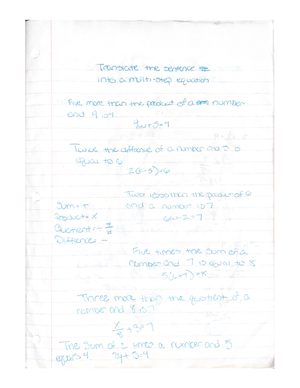 Translate the sentence
into a multi-step equation
Five more than the product of a number
and 9 is 4
Twice the difference of a number and 5 is
equal to 6
2( -5)=6
Two less than the product of 6
and a number is 7
-2=7
Sum= +
Product= X
Quotient=
Difference= -
Five times the sum of a
number and 7 is equal to 8
Three more than the quotient of a
number and 8 is 7
The sum of 2 times a number and 5
equals 4